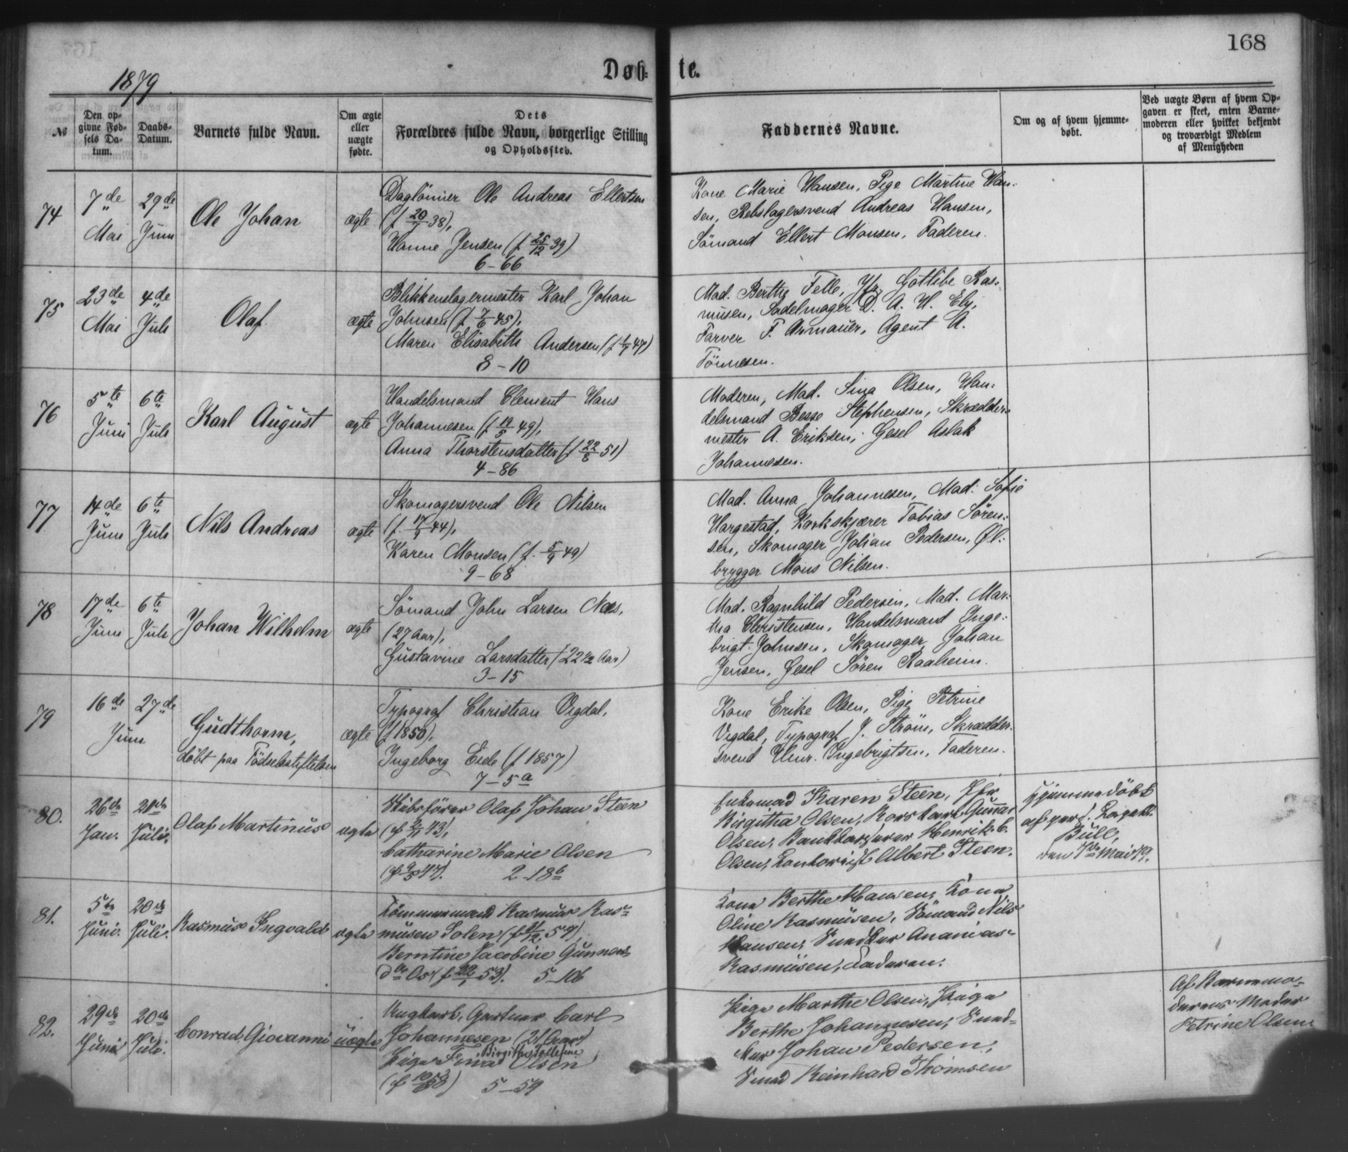 168
1879.
Døbte.
№
Den opgivne Fødsels Datum.
Daabs-Datum.
Barnets fulde Navn.
Om ægte eller uægte fødte.
Dets Forældres fulde Navn, borgerlige Stilling og Opholdssted.
Faddernes Navne.
Om og af hvem hjemmedøbt.
Ved uægte Børn af hvem Opgaven er skeet, enten Barnemoderen eller hvilket bekjendt og troværdigt Medlem af Menigheden
74
7de Mai
29de Juni
Ole Johan
ægte
Daglönner Ole Andreas Ellertsen
Hanne Jensen (f 25/12 39)
6-66
Kone Marie Hansen, Pige Martine Han-
sen, Rebslagersvend Andreas Hansen,
Sömand Ellert Monsen, Faderen.
75
23de Mai
4de Juli
Olaf.
ægte
Blikkenslagermester Karl Johan
Johnsen (f. 7/6 45),
Maren Elisabeth Andersen
8-10
Mad. Berthe Felle, Jfr. Gottibe Ras-
musen, Sadelmager D. A. H.
Farver F. Agent A.
Tönnesen.
76
5te Juni
6te Juli
Karl August
ægte
Handelsmand Clement Hans
Johannesen
Anna Thorstensdatter (f 22/8 51)
4-86
Moderen, Mad. Sina Olsen, Han-
delsmand Stephensen, Skrædder-
mester A. Eriksen, Gesel Aslak
Johannesen.
77
14de Juni
6te Juli
Nils Andreas
ægte
Skomagersvend Ole Nilsen
Karen Monsen
9-68
Mad. Anna Johannesen, Mad. Sofie
Hargestad, Korkskjærer Tobias Sören-
sen, Skomager Johan Pedersen, Öl-
brygger Mons Nilsen.
78
17de Juni
6te Juli
Johan Wilhelm
ægte
Sömand John Larsen Næs,
(27 Aar),
Gustavine Larsdatter (22 1/2 Aar)
3-15
Mad. Ragnhild Pedersen, Mad. Mar-
tha Christensen, Handelsmand Inge-
brigt Johnsen, Skomager Johan
Jensen, Gesel Sören Raaheim.
79
16de Juni
27de
Gudthorm,
döbt paa Födselsstiftelsen
ægte
Typograf Christian Vigdal,
(f 1850),
Ingeborg Eide (f 1857)
7-5a
Kone Erike Olsen, Pige Petrine
Vigdal, Typograf J. Ström, Skrædder-
svend Ingebrigtsen, Faderen.
80.
26de Jan.
Juli.
Olaf Martinus
ægte
Olaf Johan Steen
Catharine Marie Olsen
2-18b
Karen Steen, Jfr.
Birgitha Olsen, Gunnar
Olsen, Henrik C.
Olsen, Albert Steen.
Hjemmedöbt
af
Bull,
den 7de Mai 79.
81.
5te Juni.
20de Juli.
Rasmus Ingvald
ægte
Tömmermand Rasmus Ras-
musen
Berntine Jacobine Gunnars
5-106
Kone Berthe Hansen, Kone
Oline Rasmusen, Sömand Nils
Hansen, Ananias
Rasmusen, Faderen.
82.
29de Juni
20de Juli.
Conrad Giovanni
uægte
Ungkarl, Gartner Carl
Johannesen
Pige Olsen,
5-59
Pige Marthe Olsen, Pige
Berthe Johannesen,
Johan Pedersen,
Reinhard Thomsen
Af Barnemo-
derens Moder
Petrine Olsen